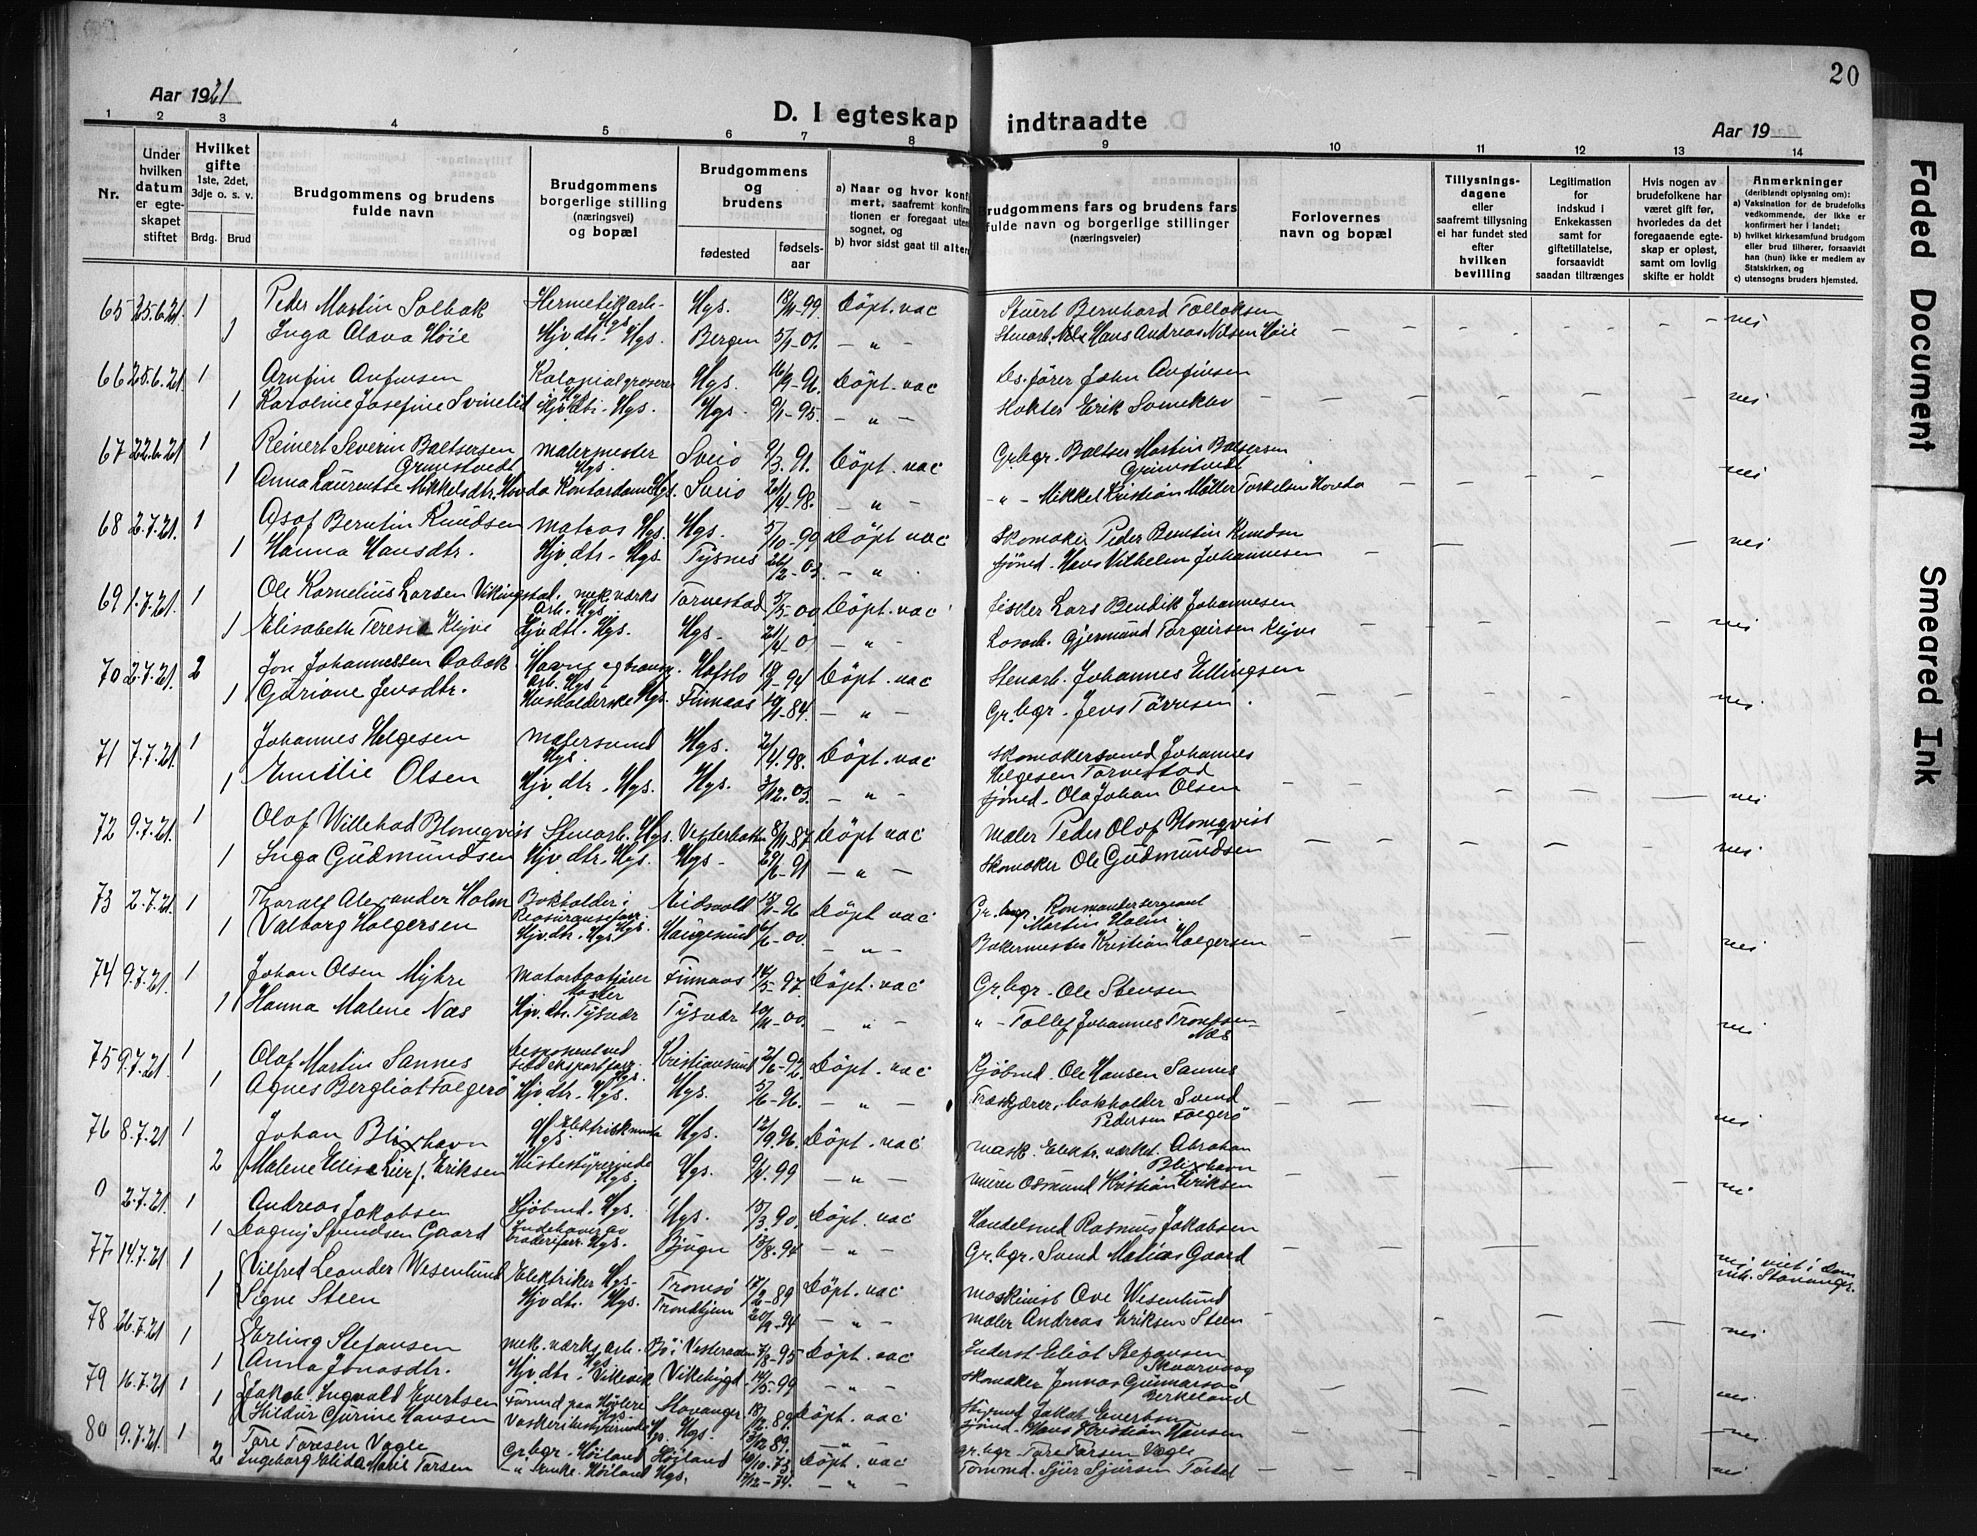 20
Aar 1921
D. I egteskap indtraadte
Aar 19
1 2 3 4 5 6 7 8 9 10 11 12 13 14
Nr.
Under hvilken datum er egteskapet stiftet
Hvilket gifte
1ste, 2det, 3dje o. s. v.
Brdg. Brud
Brudgommens og brudens fulde navn
Brudgommens borgerlige stilling (næringsvei) og bopæl
Brudgommens og brudens
fødested
fødsels-aar
a) Naar og hvor konfi
mert, saafremt konfirm
tionen er foregaat uten
sognet, og
b) hvor sidst gaat til alters
Brudgommens fars og brudens fars
fulde navn og borgerlige stillinger
(næringsveier)
Forlovernes
navn og bopæl
Tillysnings-
dagene
eller
saafremt tillysning
ei har fundet sted
efter
hvilken
bevilling
Legitimation
for
indskud i
Enkekassen
samt for
giftetillatelse,
forsaavidt
saadan tiltrænges
Hvis nogen av
brudefolkene har
været gift før,
hvorledes da det
foregaaende egte-
skap er opløst,
samt om lovlig
skifte er holdt
Anmerkninger
(deriblandt oplysning om):
a) Vaksination for de brudefolks
vedkommende, der ikke er
konfirmert her i landet;
b) hvilket kirkesamfund brudgom
eller brud tilhører, forsaavidt
han (hun) ikke er medlem av
Statskirken, og
c) utensogns bruders hjemsted.
65 25.6.21 1 Peder Martin Solbak Hermetikarb. Hgs. Hgs. 99 Döpt. vac Stuert Bernhard Tolloksen
1 Inga Olava Höie Hjv. dtr. Hgs. Bergen 5/1-01. Stenarb. Hans Andreas Nilsen Höie nei
66 25.6.21 1 Arnfin Anfinsen Kolonialgroserer Hgs. Hgs. 16/9-96. Döpt. vac Ds. förer John Anfinsen
1 Karoline Josefine Hjv. dtr. Hgs. Hgs. 9/1-95. Erik nei
67 22.6.21 1 Reinert Severin Baltsersen Grimstvedt malermester Hgs. Sveio 9/3.91. Döpt. vac Gr.bgr. Baltser Martin Baltsersen Grimstvedt
1 Anna Laurentse Mikkelsdtr. Hovda Kontordame Hgs. Sveio 98. Mikkel Kristian Möller Torkelsen Hovda nei
68 2.7.21. 1 Berntin Knudsen matros Hgs. Hgs. 5/10-99 Döpt. vac Skomaker Peder Berntin Knudsen
1 Hanna Hansdtr. Hjv. dtr. Hgs. Tysnes 26/2-03. Sjömd. Hans Vilhelm Johannesen nei
69 1.7.21. 1 Ole Kornelius Larsen Vikingstad mek. værks arb. Hgs. Torvestad 5/5-00 Döpt. vac Fisker Lars Bendik Johannesen
1 Elisabeth Teresia Klyve Hjv. dtr. Hgs. Hgs. 21/4-0 Losarb. Gjermund Torgeirsen Klyve nei
70 2.7.21. 2 Jon Johannessen arb. Hgs. Hafslo 94 Döpt. vac Stenarb. Johannes Ellingsen
1 Gjöriane Jensdtr. Husholderske Hgs. Finnaas 84. Gr. bgr. Jens Törresen. nei
71 7.7.21. 1 Johannes Helgesen malersvend Hgs. Hgs. 2/4.98. Döpt. vac Skomakersvend Johannes Helgesen Torvestad
1 Emilie Olsen Hjv. dtr. Hgs. Hgs. 3/12.03. Sjömd. Ola Johan Olsen nei
72 9.7.21. 1 Olaf Willehad Blomqvist Stenarb. Hgs. Vesterbotten 87. Döpt. vac maler Peder Olof Blomqvist
1 Inga Gudmundsen Hjv. dtr. Hgs. Hgs. 91 Skomaker Ole Gudmundsen nei
73 2.7.21. 1 Thoralf Alexander Holm Bokholder i Hgs. Eidsvold 96 Döpt vac Gr. bgr. Kommandersergeant Martin Holm.
1 Valborg Holgersen Hjv. dtr. Hgs. Haugesund 00. Bakermester Kristian Holgersen nei
74 9.7.21. 1 Johan Olsen Myhre Finnaas 14/5-97. Döpt. vac Gr. bgr. Ole Stensen
1 Hanna Malene Næs Hjv. dtr. Tysvær Tysvær 00. Tollef Johannes Trondsen Næs nei
75 9.7.21. 1 Olaf Martin Sannes Disponent ved sildeksportforr. Hgs. Kristiansund 2/6-92. Döpt. vac Kjöbmd. Ole Hansen Sannes
1 Agnes Bergliot Folgerö Hjv. dtr. Hgs. Hgs. 5/6-96. bokholder Svend Pedersen Folgerö nei
76 8.7.21 1 Johan Blixhavn Hgs. Hgs. 12/9.96. Döpt. vac mask. Elektr. værket. Abraham Blixhavn
2 Malene Elise Lier f. Eriksen Husbestyrerinde Hgs. Hgs. 9/4.99 murer Osmund Kristian Eriksen nei
0 2.7.21. 1 Andreas Jakobsen Kjöbmd. Hgs. Hgs. 15/3.90. Döpt. vac Handelsmd Rasmus Jakobsen
1 Dagny Svendsen Gaard Indehaver av broderiforr. Hgs. Bjugn 13/8.94 Gr. bgr. Svend Matias Gaard nei, viet i Dom kirk. Stavanger.
77 14.7.21. 1 Vilfred Leander Wesenlund Elektriker Hgs. Tromsö 89 Döpt. vac maskinist Ove Wesenlund
1 Signe Steen Hjv. dtr. Hgs. Trondhjem 20/9-94 maler Andreas Eriksen Steen nei.
78 26.7.21 1 Erling Stefansen mek. værks arb. Hgs. Bö i Vesteraalen 7/8-95 Döpt. vac Inderst Eliot Stefansen Skaarvaag
1 Anna Jonasdtr. Hjv. dtr. Villevik Vikebygd 14/5-99 Skomaker Jonnas Gunnarson Berkeland nei
79 16.7.21 1 Jakob Ingvald Evertsen Hgs. Stavanger 18/12.89. Döpt. vac Jakob Evertsen
1 Hildur Gurine Hansen Hgs. Hgs. 13/12 89. Sjömd. Hans Kristian Hansen nei.
80 9.7.21. 1 Tore Toresen Vagle Gr. bgr. Höiland Höiland 10/10.73 Döpt. vac gr. bgr. Tore Toresen Vagle
2 Ingeborg Elida Marie Tarsen Enke. Höiland Hgs. 17/12-74. Tömmd. Sjur Sjursen nei.
Faded Document
Smeared Ink